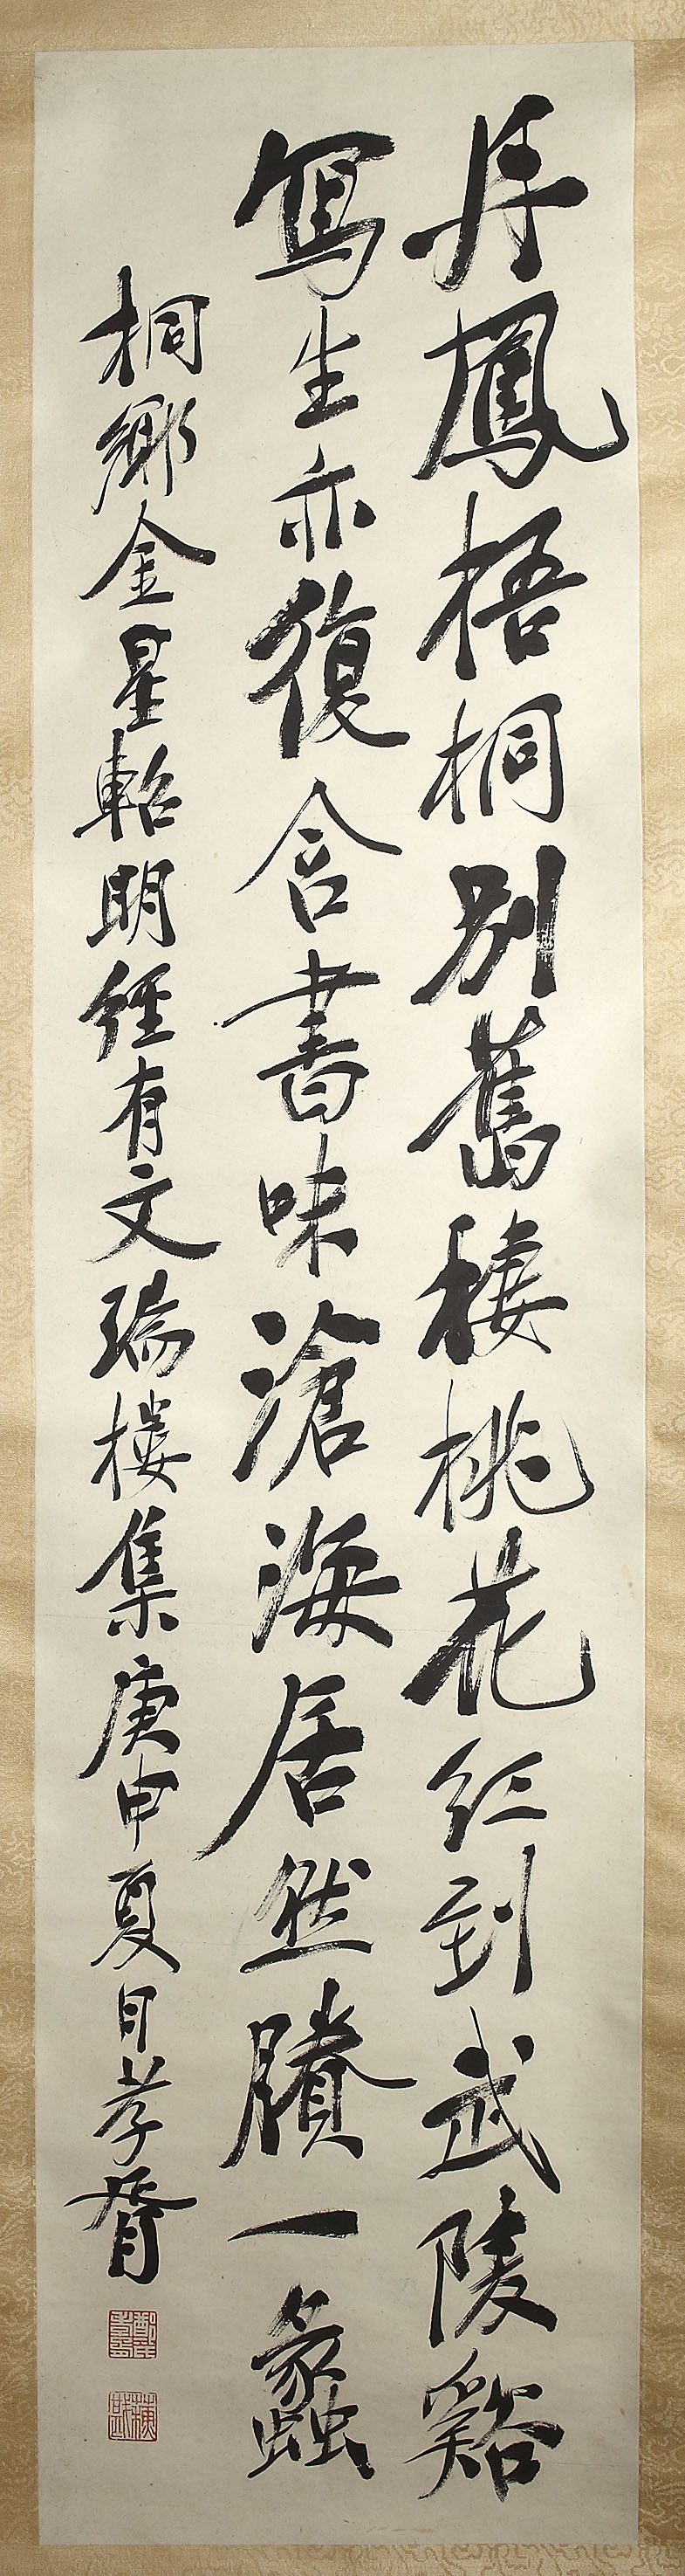 丹鳳梧桐別舊棲桃花紅到武陵谿
寫生亦復含書味滄海居然賸一蠡
桐鄉金星軺明經有文瑞樓集庚申夏日孝胥